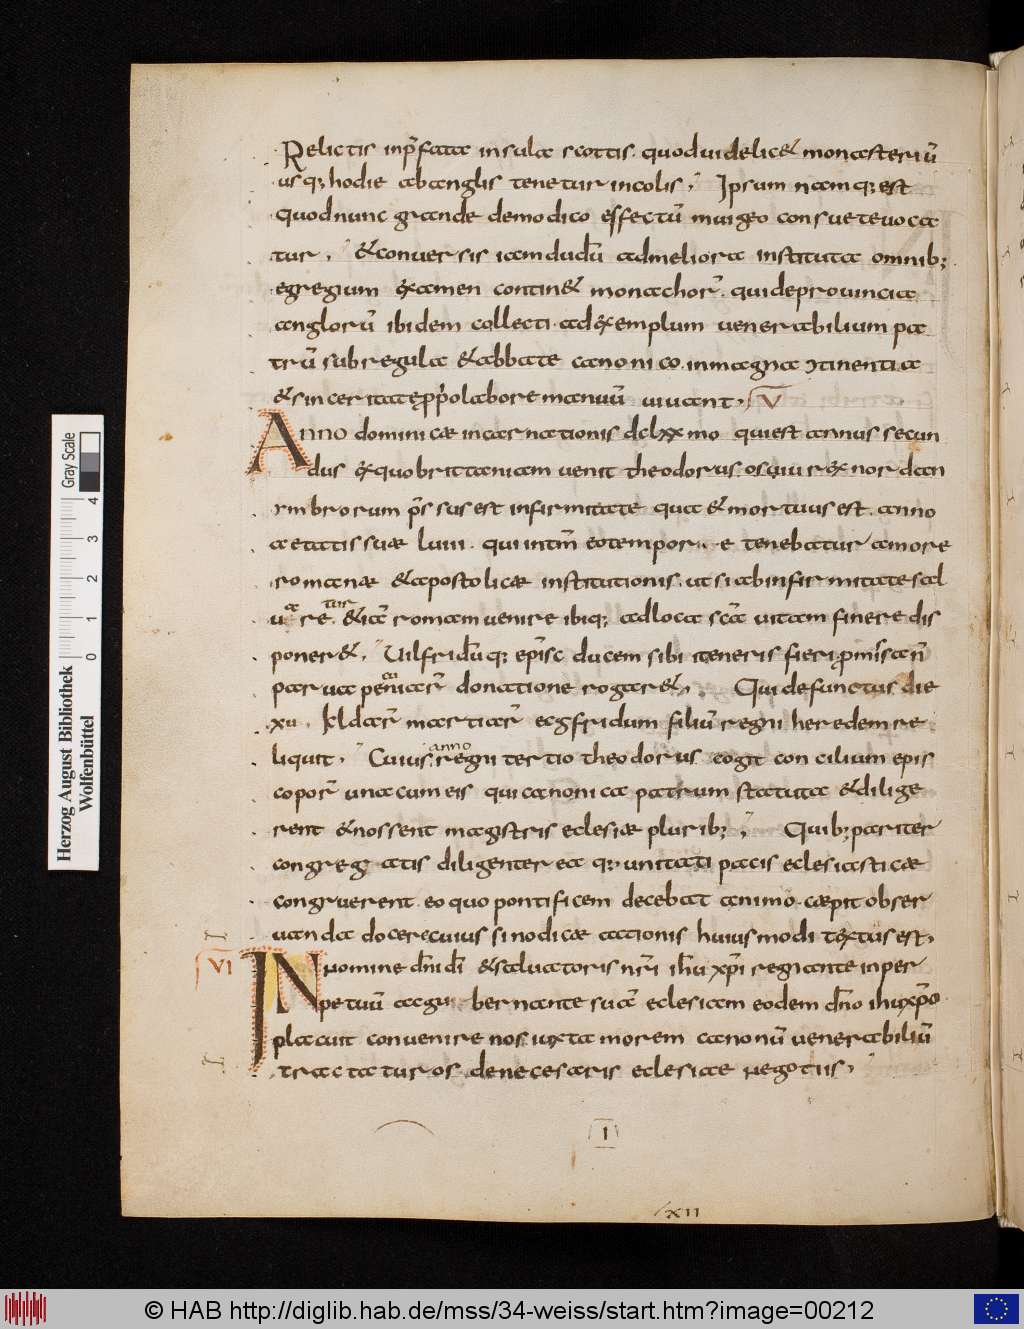 Relictis inp̄fata insula scottis. quod uidelic& monasteriū
usq; hodie ab anglis tenetur incolis; Ipsum namq; est
quod nunc grande de modico effectū muigeo consuete uoca
tur; & conuersis iamdudū ad meliora instituta omnib;
egregium examen contin& monachoꝝ. qui de prouincia
anglorū ibidem collecti ad exemplum uenerabilium pa
trū sub regula & abbate canonico. in magna ↄtinentia
& sinceritate ꝓprio labore manuū uiuant; V
Anno dominicæ incarnationis dclxxmo qui est annus secun
dus ex quo brittaniam uenit theodorus. osuiu rex nordan
rmbrorum p̄ssus est infirmitate qua & mortuus est. anno
aetatis suæ luiii. qui intm̄ eo tempore tenebatur amore
romanæ & apostolicæ institutionis. ut si ab infirmitate sal
uare tur. & iā romam uenire ibiq; ad loca sc̄a uitam finere dis
poner&; Uilfridūq; ep̄isc ducem sibi iteneris fieri promissa n̄
parua peccuniaꝝ donatione rogar&; Qui defunctus die
xu. kl̄darꝝ martiarꝝ ecgfridum filiū regni heredem re
liquit; Cuius anno regni tertio theodorus cogit concilium epis
copoꝝ una cum eis qui canonica patrum statuta & dilige
rent & nossent magistris eclesiæ plurib; ; Quib; pariter
congregatis diligenter ea quæ unitati pacis eclesiasticæ
congruerent. eo quo pontificem decebat animo. cæpit obser
uanda docere cuius sinodicæ actionis huiusmodi textus est;
VI IN nomine dn̄i dī & saluatoris nr̄i ih̄u xp̄i regnante in per
petuū ac gubernante suā eclesiam eodem dn̄o ih̄u xp̄o
placuit conuenire nos iuxta morem canonū uenerabiliū
tractaturos de necesaris eclesiae negotiis;
I
XII
Herzog August Bibliothek
Wolfenbüttel
Gray Scale
0 1 2 3 4
© HAB http://diglib.hab.de/mss/34-weiss/start.htm?image=00212